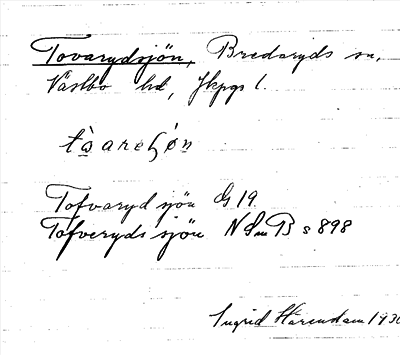 Tovarydsjön, Bredaryds sn,
Västbo hd, Jkpgs l.
tàareʃ́øn
Tofvaryd sjön G 19.
Tofveryds sjön N Sm B s 898
Ingrid Härenstam 1930